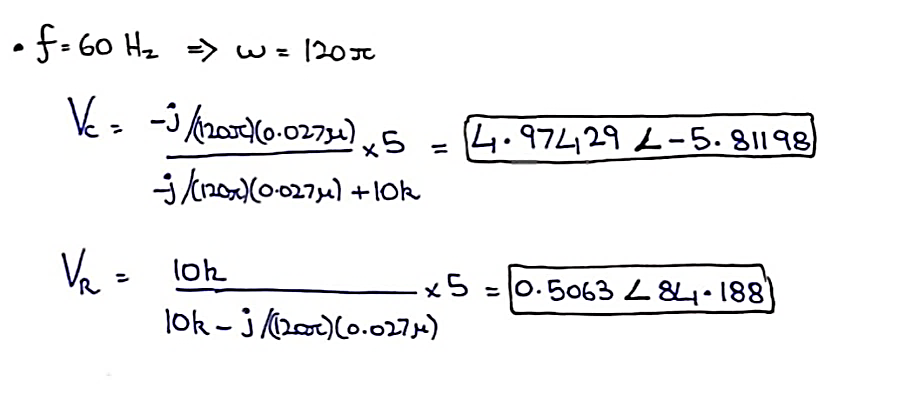 • f = 60 Hz ⇒ ω = 120π
Vc = -j/(120π)(0.027μ) / -j/(120π)(0.027μ) + 10k × 5 = 4.97429 ∠ -5.81198
VR = 10k / 10k - j/(120π)(0.027μ) × 5 = 0.5063 ∠ 84.188